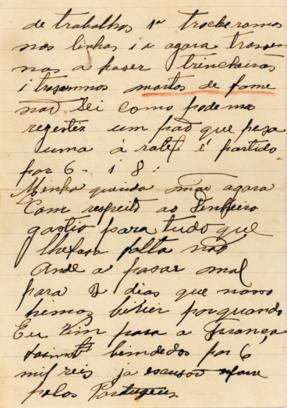 de trabalhos 1º trocheramos
nas linhas i a agora trasem
nos a faser trincheiras
i trasemnos mortos de fome
nao Sei como podemos
regestir um pao que pesa
uma a ration é partido
por 6. i 8:
Minha querida mai agora
Com respeito ao Dinheiro
gastio para tudo que
lhefasa falta nao
Ande a pasar mal
para 2 dias que
porquando
Eu Vim para a França
bendedos por 6
mil reis ja
pelos Portugueses